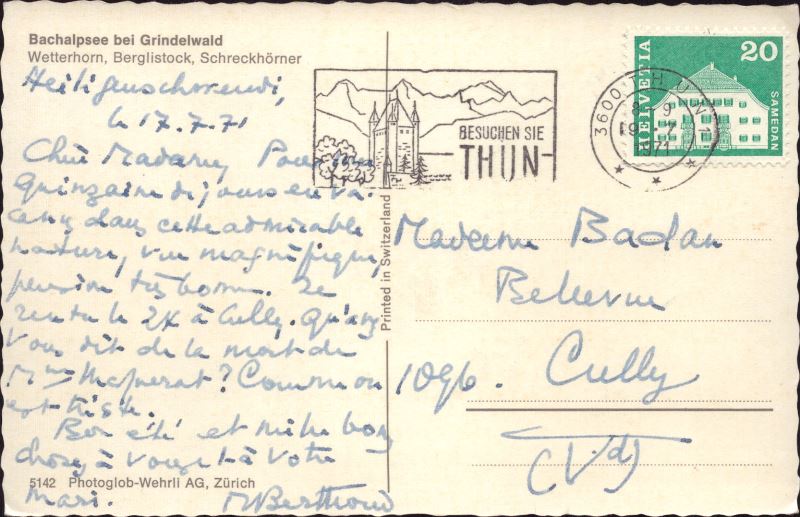 Bachalpsee bei Grindelwald
Wetterhorn, Berglistock, Schreckhörner
Heiligenschwendi,
le 17.7.71
Chère Madame, Pour une
Quinzaine de jours en va
dans cette admirable
nature, vue magnifique,
pension très bonne. Je
rentre le 24 à Cully.
Vous dit de la mort de
Mme ? Comme on
est triste.
Bon été et mille bonnes
choses à vous et à votre
mari. Berthoud
5142 Photoglob-Wehrli AG, Zürich
Printed in Switzerland
BESUCHEN SIE
THUN
3600 THUN 1
8-9
19.-7.
1971
HELVETIA
20
SAMEDAN
Madame Badan
Bellevue
1096. Cully
(Vd)